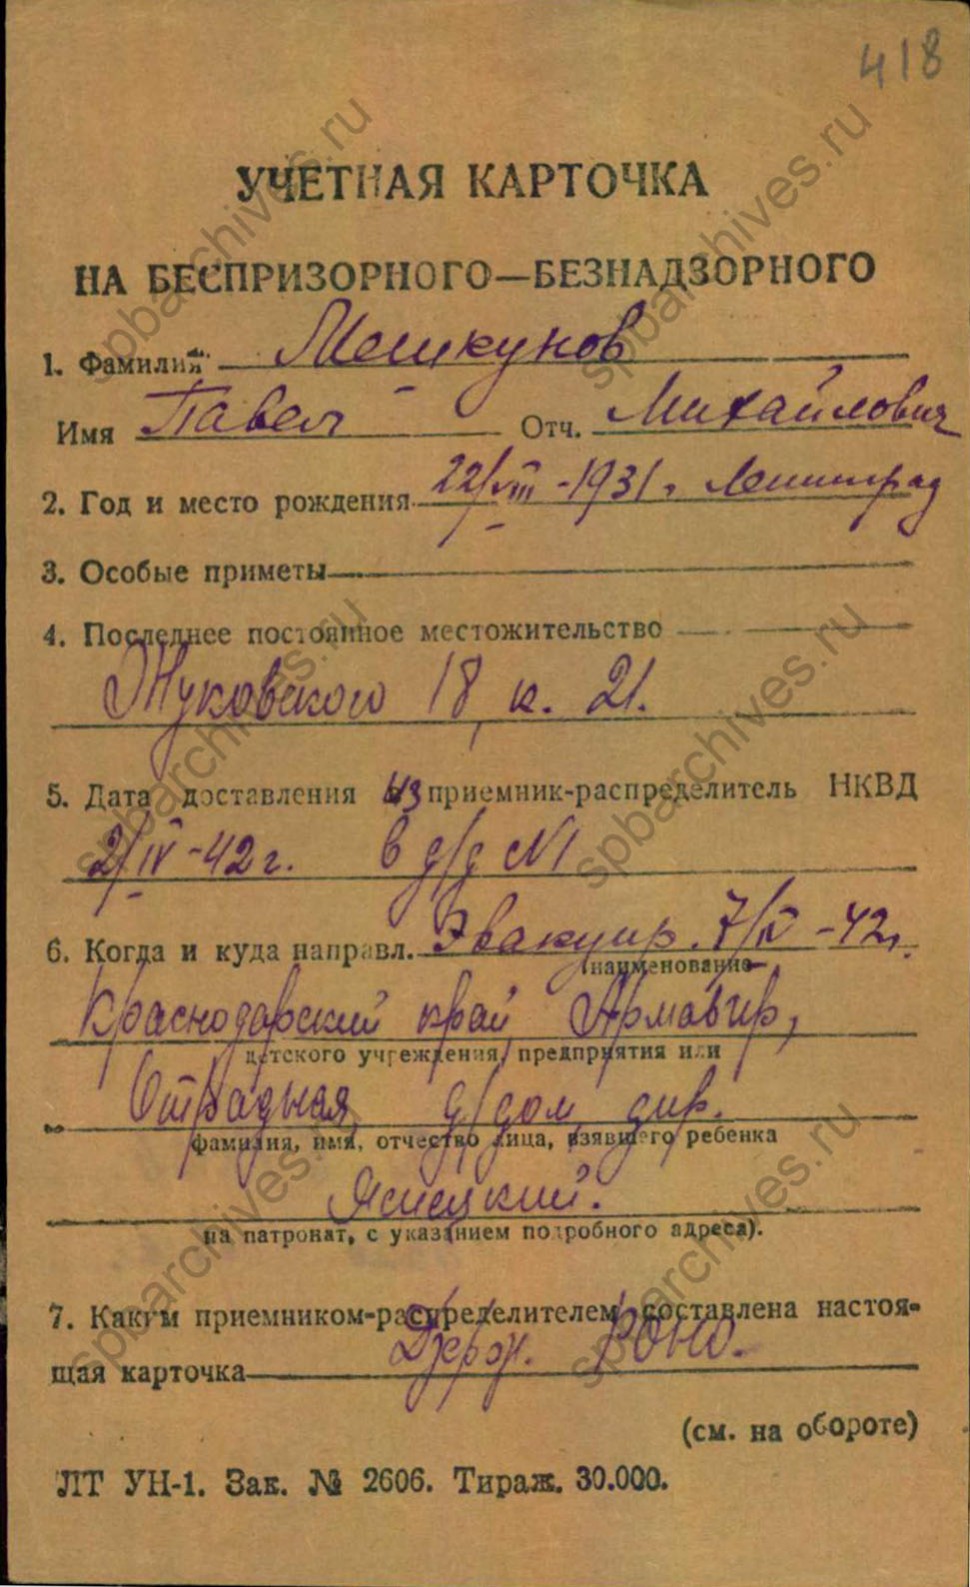 418
УЧЕТНАЯ КАРТОЧКА
НА БЕСПРИЗОРНОГО—БЕЗНАДЗОРНОГО
1. Фамилия Мешкунов
Имя Павел Отч. Михайлович
2. Год и место рождения 22/VIII-1931 г. Ленинград
3. Особые приметы
4. Последнее постоянное местожительство
Жуковского 18, к. 21.
5. Дата доставления из приемник-распределитель НКВД
2/IV-42 г. в д/д №1
6. Когда и куда направл. Эвакуир. 7/IV-42 г.
(наименование
Краснодарский край, Армавир,
детского учреждения, предприятия или
Отрадная, д/дом, дир.
фамилия, имя, отчество лица, взявшего ребенка
Ясиецкий.
на патронат, с указанием подробного адреса).
7. Каким приемником-распределителем составлена настоя-
щая карточка Дзерж. РОНО.
(см. на обороте)
ЛТ УН-1. Зак. № 2606. Тираж. 30.000.
spbarchives.ru
spbarchives.ru
spbarchives.ru
spbarchives.ru
spbarchives.ru
spbarchives.ru